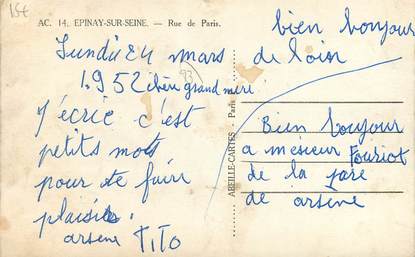 15€
AC. 14. EPINAY-SUR-SEINE. — Rue de Paris.
lundi 24 mars
1.952 chère grand mère
(93)
J'écrie c'est
petits mots
pour te faire
plaisir.
arsene TITO
ABEILLE-CARTES - Paris
bien bonjour
de loin
Bien boujour
a mesieur Fouriot
de la pare
de arsene